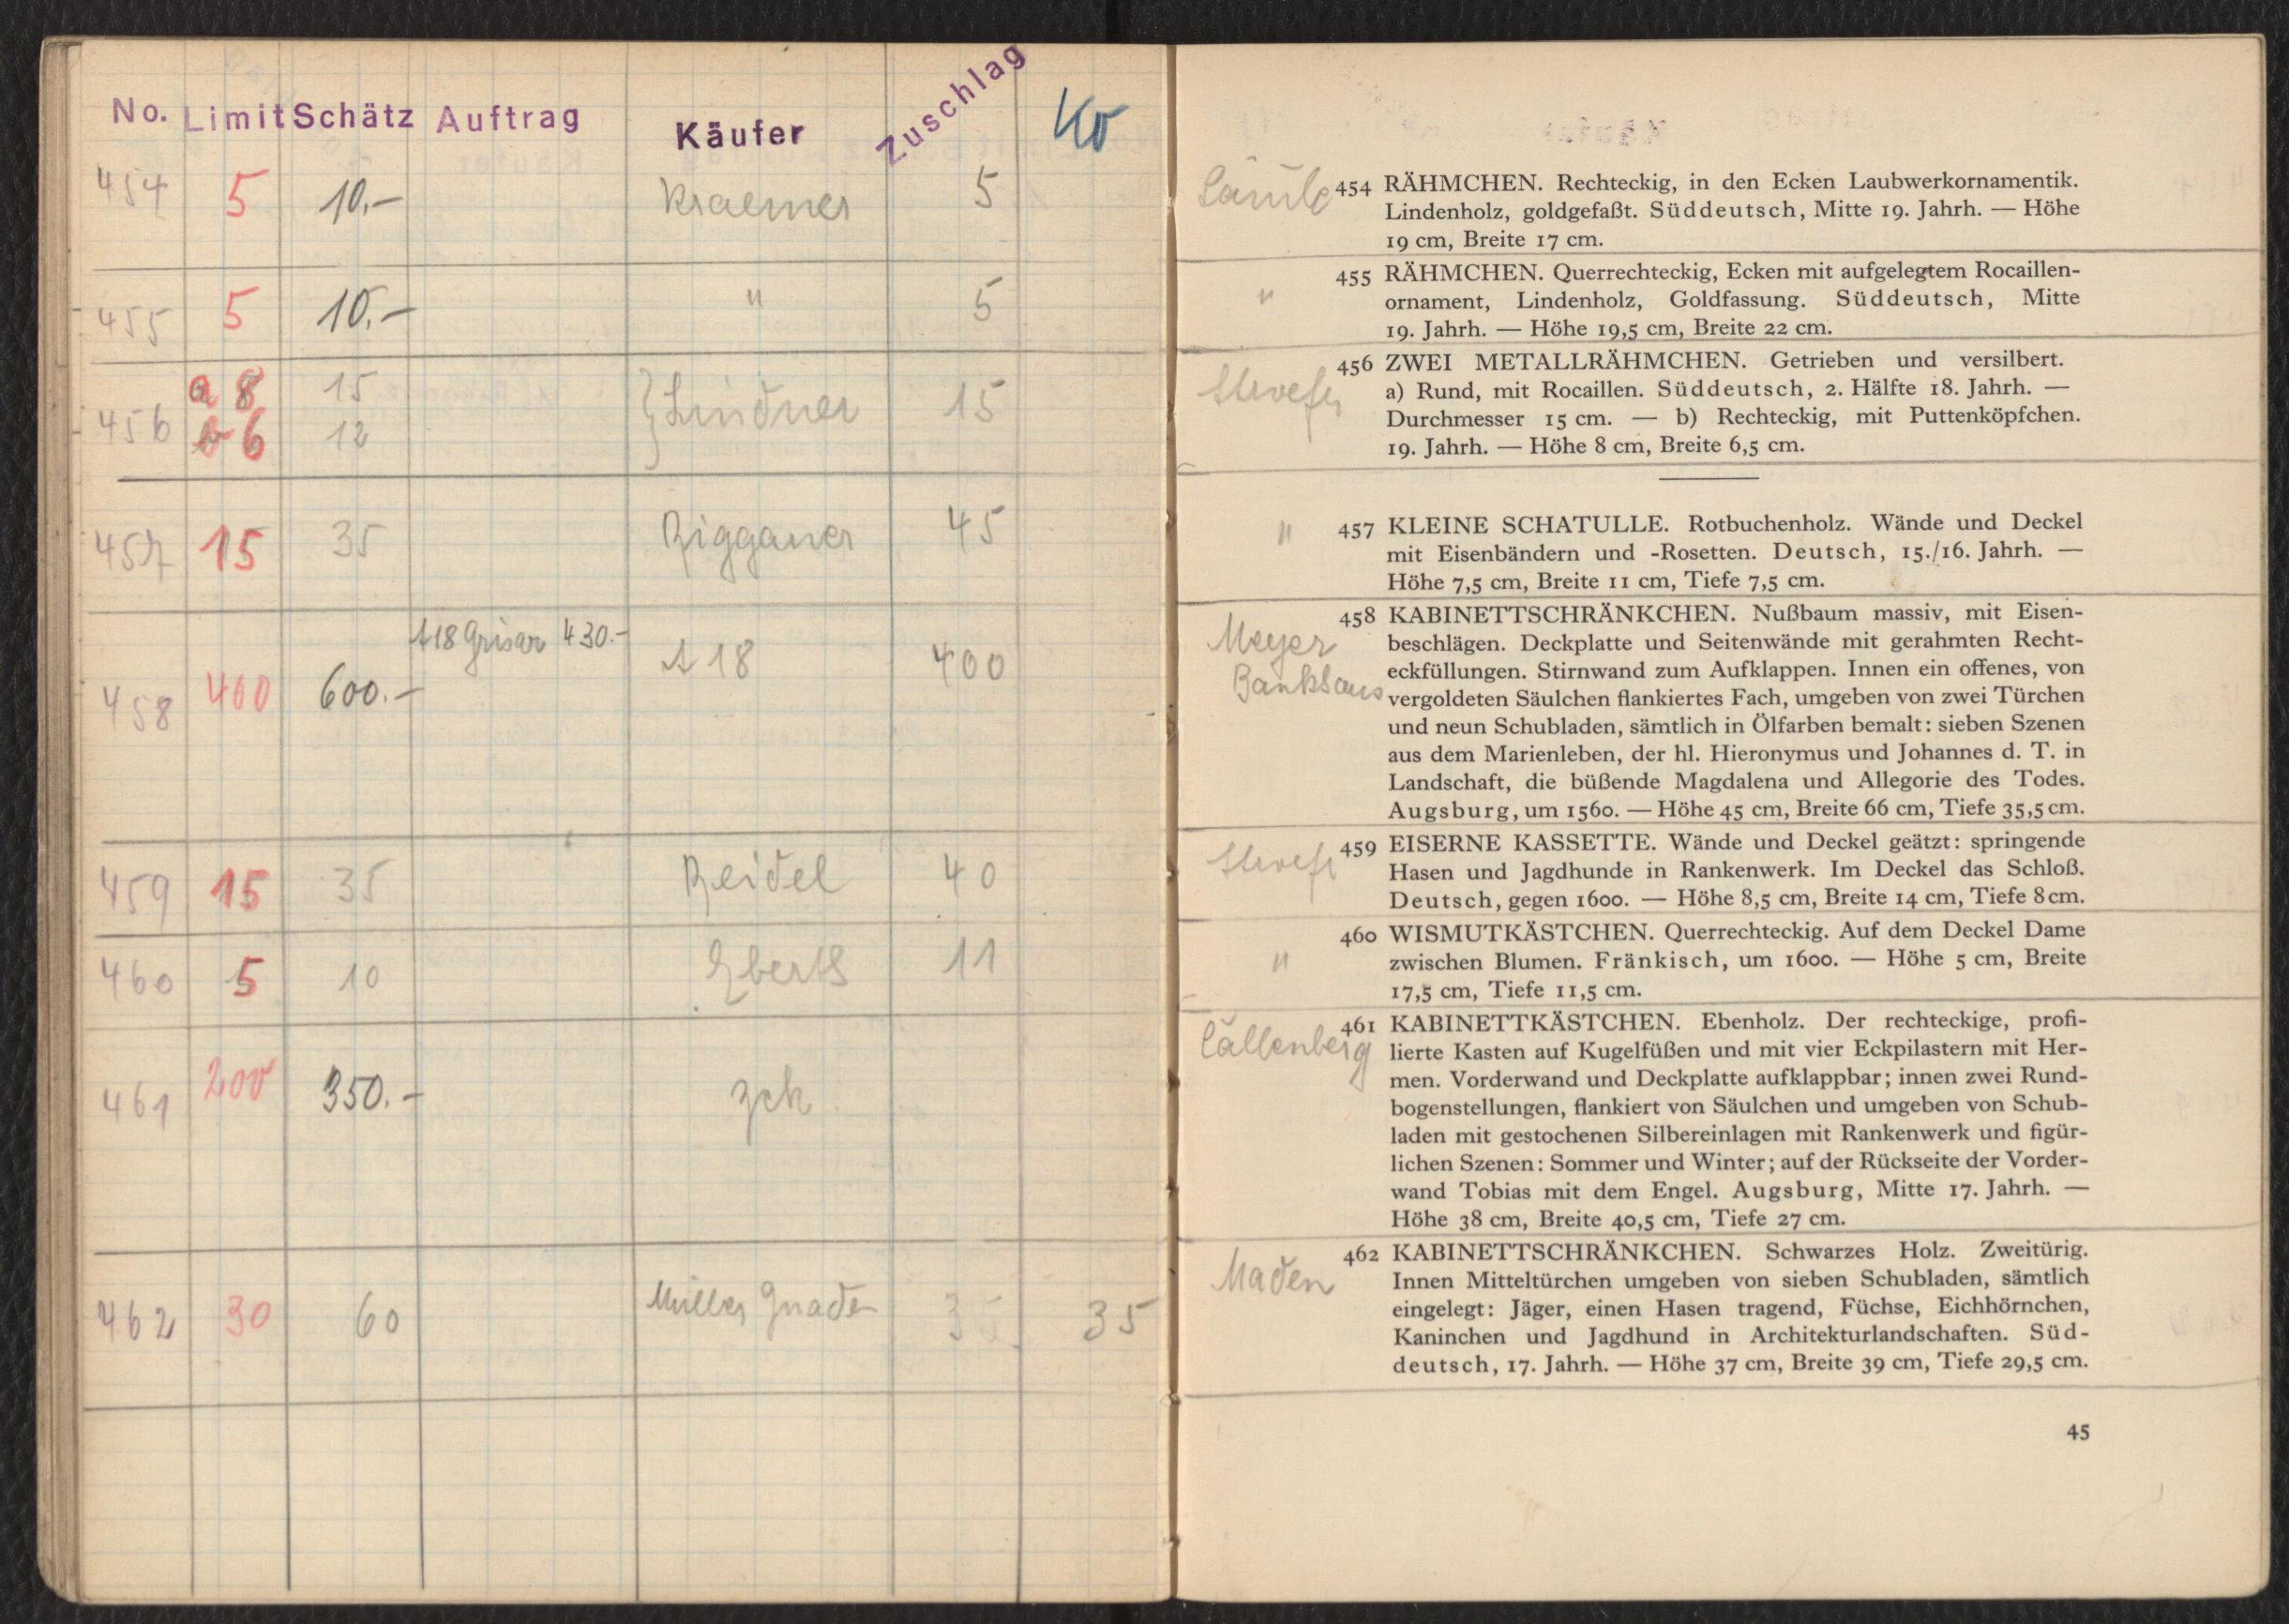 No. Limit Schätz Auftrag Käufer Zuschlag Ko
454 5 10.- Kraemer 5
455 5 10.- " 5
a 8 15
456 } Lindner 15
b 6 12
457 15 35 Riggauer 45
A18 Grisar 430.-
458 400 600.- A 18 400
459 15 35 Reidel 40
460 5 10 11
461 200 350.- zck
462 30 60 Müller Gnaden 35 35
454 RÄHMCHEN. Rechteckig, in den Ecken Laubwerkornamentik.
Lindenholz, goldgefaßt. Süddeutsch, Mitte 19. Jahrh. — Höhe
19 cm, Breite 17 cm.
" 455 RÄHMCHEN. Querrechteckig, Ecken mit aufgelegtem Rocaillen-
ornament, Lindenholz, Goldfassung. Süddeutsch, Mitte
19. Jahrh. — Höhe 19,5 cm, Breite 22 cm.
456 ZWEI METALLRÄHMCHEN. Getrieben und versilbert.
a) Rund, mit Rocaillen. Süddeutsch, 2. Hälfte 18. Jahrh. —
Durchmesser 15 cm. — b) Rechteckig, mit Puttenköpfchen.
19. Jahrh. — Höhe 8 cm, Breite 6,5 cm.
" 457 KLEINE SCHATULLE. Rotbuchenholz. Wände und Deckel
mit Eisenbändern und -Rosetten. Deutsch, 15./16. Jahrh. —
Höhe 7,5 cm, Breite 11 cm, Tiefe 7,5 cm.
Meyer
Bankhaus
458 KABINETTSCHRÄNKCHEN. Nußbaum massiv, mit Eisen-
beschlägen. Deckplatte und Seitenwände mit gerahmten Recht-
eckfüllungen. Stirnwand zum Aufklappen. Innen ein offenes, von
vergoldeten Säulchen flankiertes Fach, umgeben von zwei Türchen
und neun Schubladen, sämtlich in Ölfarben bemalt: sieben Szenen
aus dem Marienleben, der hl. Hieronymus und Johannes d. T. in
Landschaft, die büßende Magdalena und Allegorie des Todes.
Augsburg, um 1560. — Höhe 45 cm, Breite 66 cm, Tiefe 35,5 cm.
459 EISERNE KASSETTE. Wände und Deckel geätzt: springende
Hasen und Jagdhunde in Rankenwerk. Im Deckel das Schloß.
Deutsch, gegen 1600. — Höhe 8,5 cm, Breite 14 cm, Tiefe 8 cm.
" 460 WISMUTKÄSTCHEN. Querrechteckig. Auf dem Deckel Dame
zwischen Blumen. Fränkisch, um 1600. — Höhe 5 cm, Breite
17,5 cm, Tiefe 11,5 cm.
Callenberg
461 KABINETTKÄSTCHEN. Ebenholz. Der rechteckige, profi-
lierte Kasten auf Kugelfüßen und mit vier Eckpilastern mit Her-
men. Vorderwand und Deckplatte aufklappbar; innen zwei Rund-
bogenstellungen, flankiert von Säulchen und umgeben von Schub-
laden mit gestochenen Silbereinlagen mit Rankenwerk und figür-
lichen Szenen: Sommer und Winter; auf der Rückseite der Vorder-
wand Tobias mit dem Engel. Augsburg, Mitte 17. Jahrh. —
Höhe 38 cm, Breite 40,5 cm, Tiefe 27 cm.
Maden
462 KABINETTSCHRÄNKCHEN. Schwarzes Holz. Zweitürig.
Innen Mitteltürchen umgeben von sieben Schubladen, sämtlich
eingelegt: Jäger, einen Hasen tragend, Füchse, Eichhörnchen,
Kaninchen und Jagdhund in Architekturlandschaften. Süd-
deutsch, 17. Jahrh. — Höhe 37 cm, Breite 39 cm, Tiefe 29,5 cm.
45